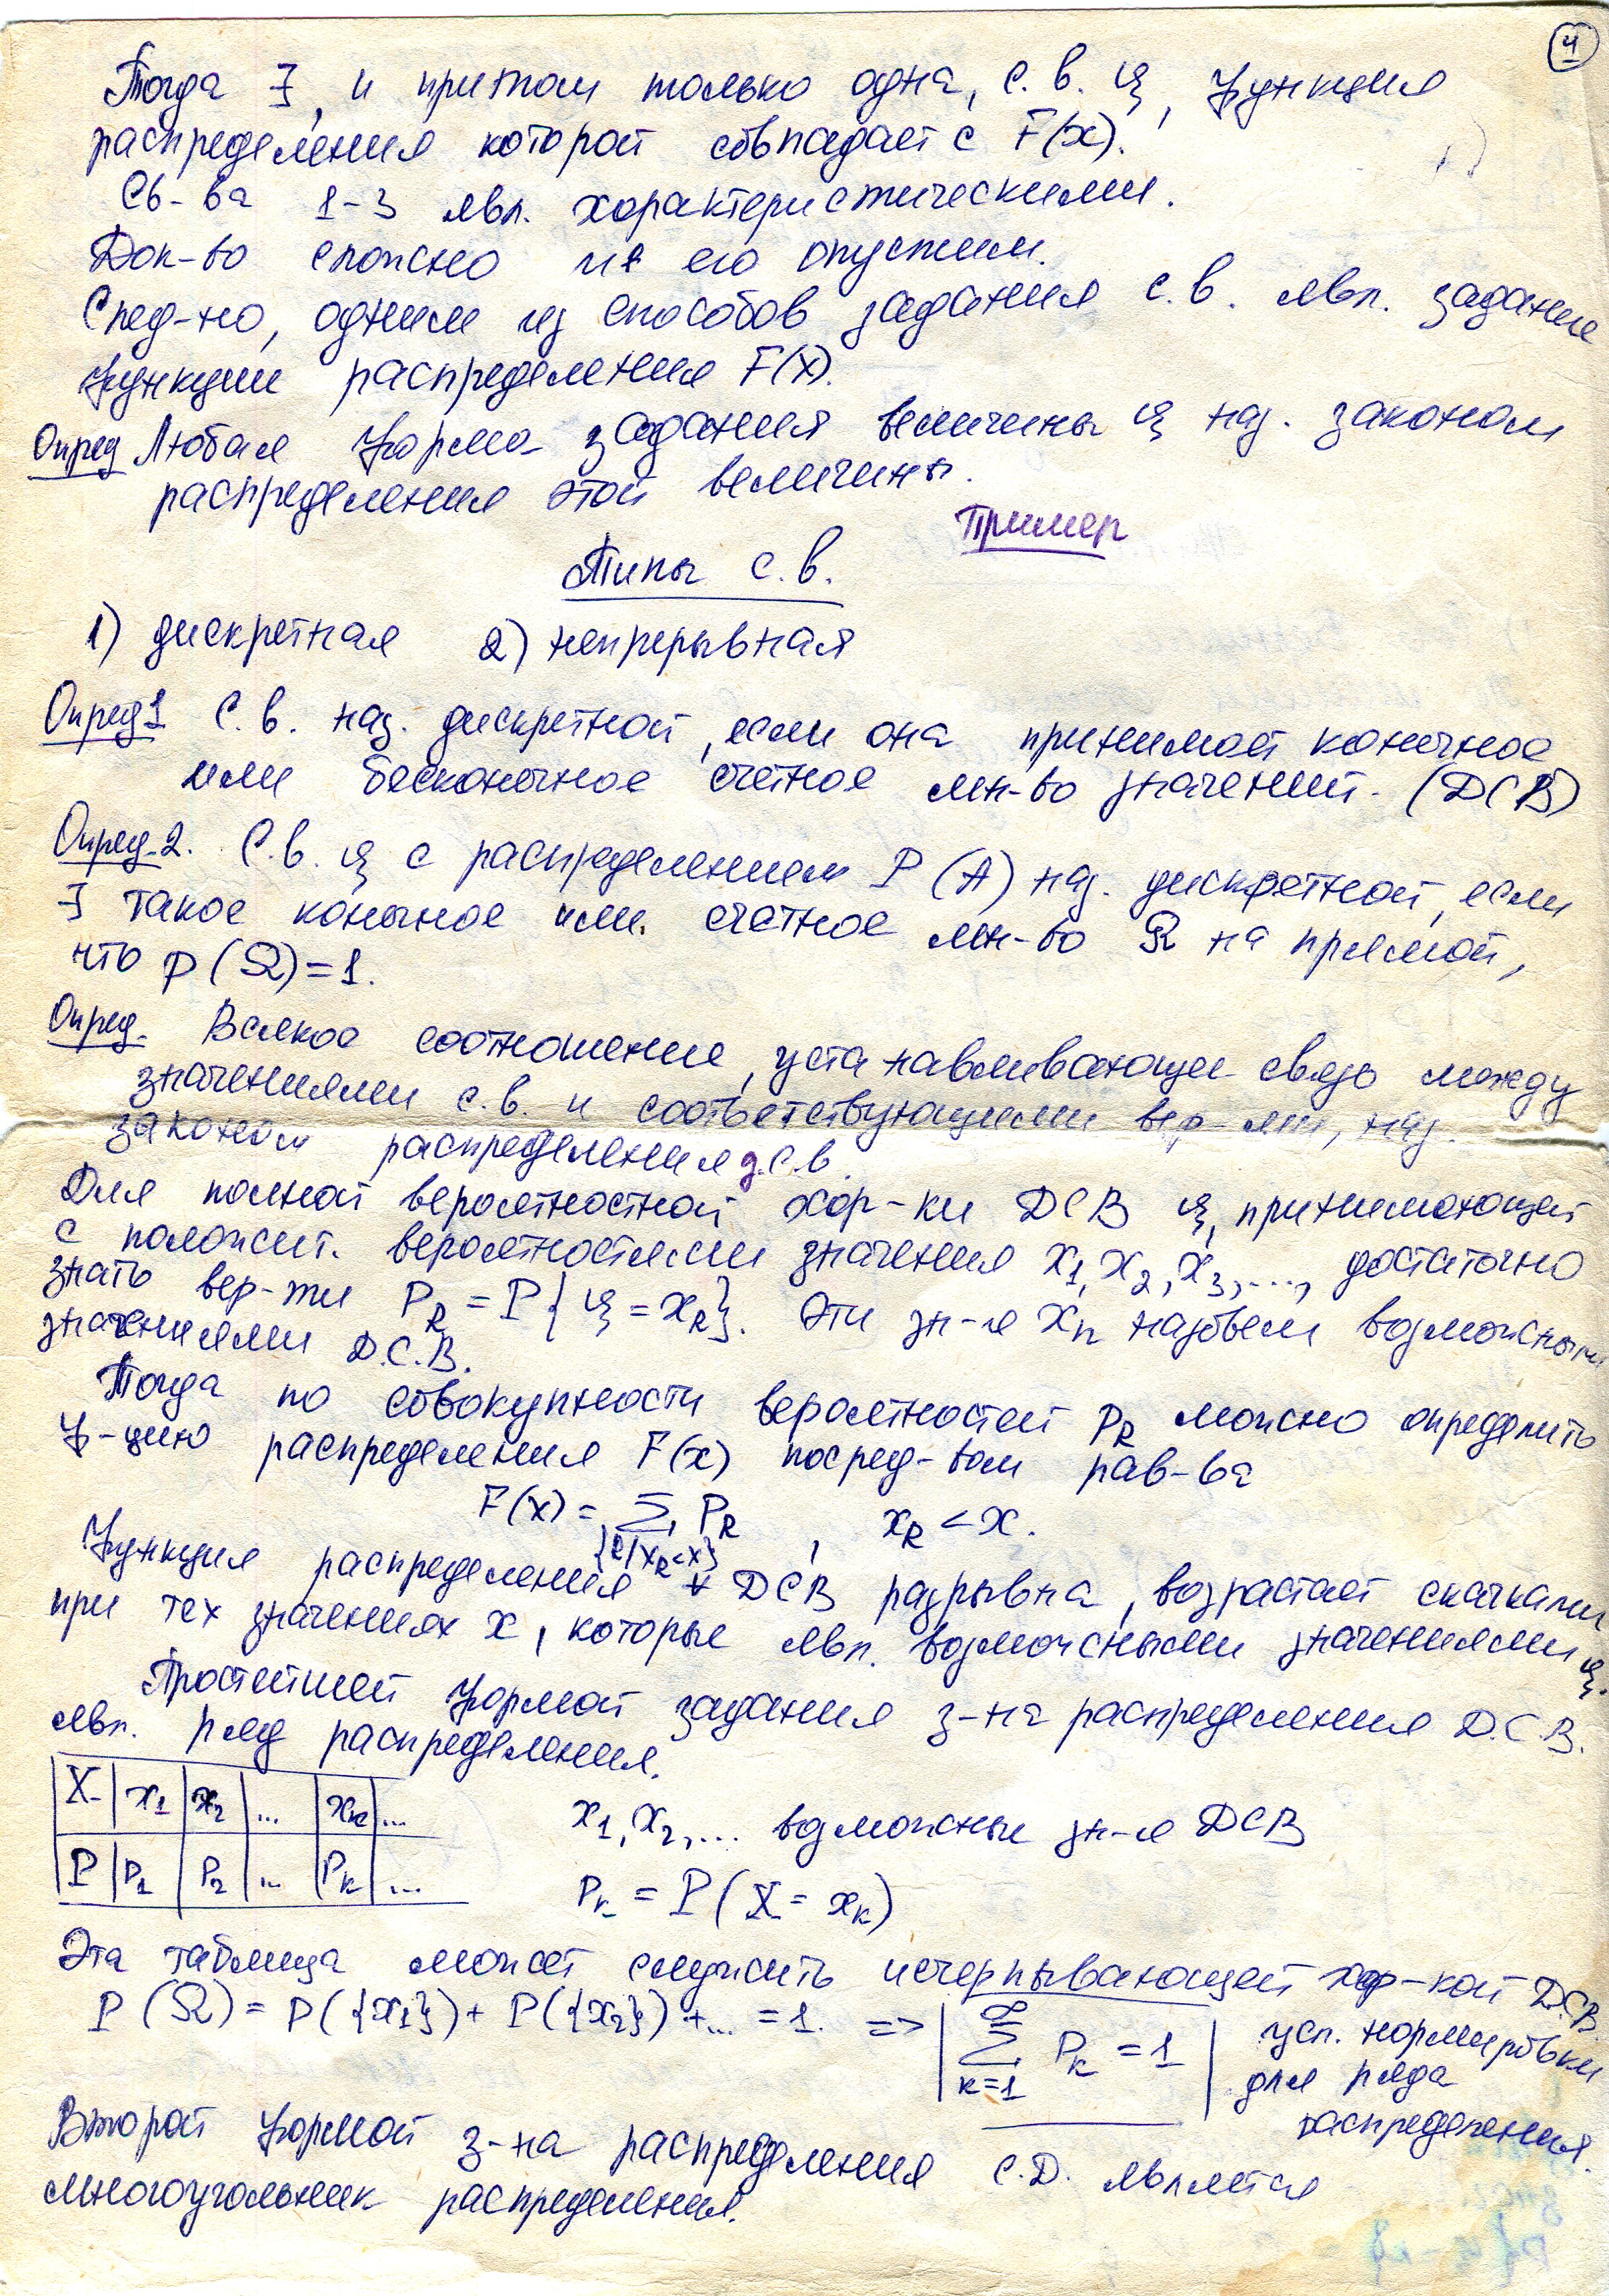 4
Тогда ∃, и притом только одна, с.в. ξ, функция
распределения которой совпадает с F(x).
Св-ва 1-3 явл. характеристическими.
Док-во сложно и его опустим.
След-но, одним из способов задания с.в. явл. задание
функции распределения F(x).
Опред Любая форма задания величины ξ наз. законом
распределения этой величины.
Пример
Типы с.в.
1) дискретная 2) непрерывная
Опред1 С.в. наз. дискретной, если она принимает конечное
или бесконечное счетное мн-во значений. (ДСВ)
Опред.2. С.в. ξ с распределением P(A) наз. дискретной, если
∃ такое конечное или счетное мн-во Ω на прямой,
что P(Ω)=1.
Опред. Всякое соотношение, устанавливающее связь между
значениями с.в. и соответствующими вер-ми, наз.
законом распределения д.с.в.
Для полной вероятностной хар-ки ДСВ ξ, принимающей
с положит. вероятностями значения x₁, x₂, x₃, ..., достаточно
знать вер-ти P_k = P{ξ = x_k}. Эти зн-я x_n назовем возможными
значениями Д.С.В.
Тогда по совокупности вероятностей P_k можно определить
ф-цию распределения F(x) посред-вом рав-ва
F(x) = Σ P_k , x_k < x.
{k/x_k<x}
Функция распределения ДСВ разрывна, возрастает скачками
при тех значениях x, которые явл. возможными значениями ξ.
Простейшей формой задания з-на распределения Д.С.В.
явл. ряд распределения.
X x₁ x₂ ... x_k ...
P P₁ P₂ ... P_k ...
x₁, x₂, ... возможные зн-я ДСВ
P_k = P(X = x_k)
Эта таблица может служить исчерпывающей хар-кой Д.С.В.
P(Ω) = P({x₁}) + P({x₂}) + ... = 1. => | Σ P_k = 1 | усл. нормировки
∞
k=1
для ряда
распределения.
Второй формой з-на распределения С.Д. является
многоугольник распределения.